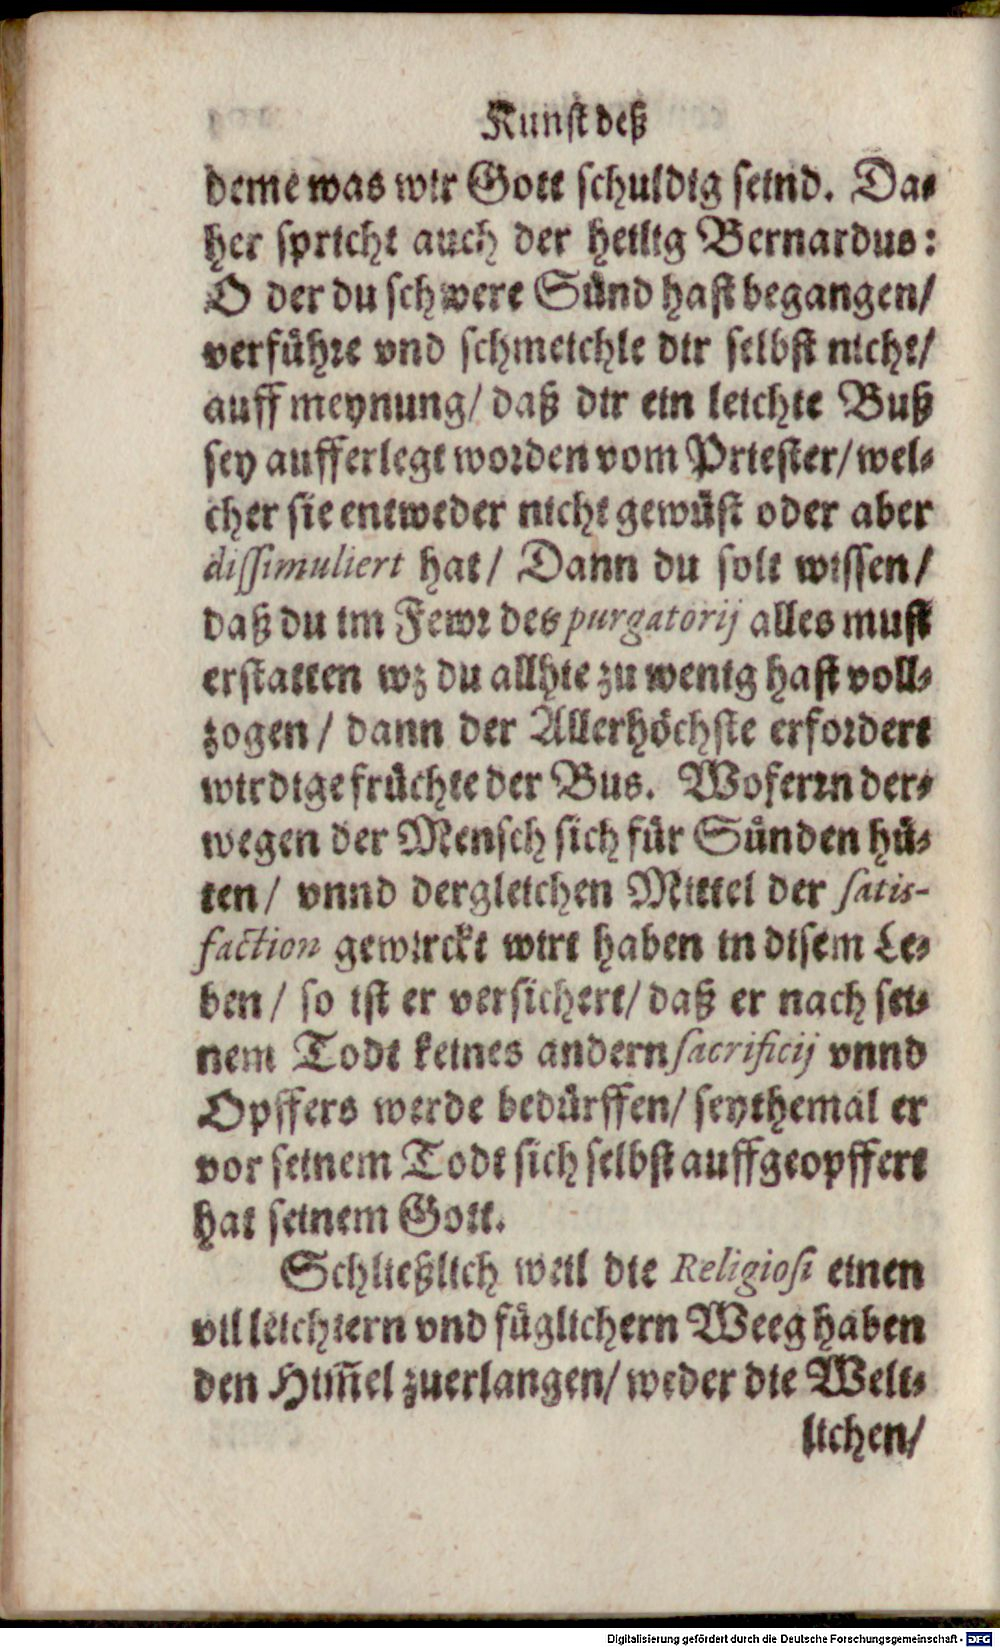 Kunst deß
deme was wir Gott schuldig seind. Da-
her spricht auch der heilig Bernardus:
O der du schwere Sünd hast begangen/
verführe vnd schmeichle dir selbst nicht/
auff meynung/ daß dir ein leichte Buß
sey aufferlegt worden vom Priester/ wel-
cher sie entweder nicht gewüst oder aber
dissimuliert hat/ Dann du solt wissen/
daß du im Fewr des purgatorij alles must
erstatten wz du allhie zu wenig hast voll-
zogen/ dann der Allerhöchste erfordert
wirdige früchte der Bus. Woferrn der-
wegen der Mensch sich für Sünden hü-
ten/ vnnd dergleichen Mittel der satis-
faction gewirckt wirt haben in disem Le-
ben/ so ist er versichert/ daß er nach sei-
nem Todt keines andern sacrificij vnnd
Opffers werde bedürffen/ seythemal er
vor seinem Todt sich selbst auffgeopffert
hat seinem Gott.
Schließlich weil die Religiosi einen
vil leichtern vnd füglichern Weeg haben
den Him̄el zuerlangen/ weder die Welt-
lichen/
Digitalisierung gefördert durch die Deutsche Forschungsgemeinschaft - DFG